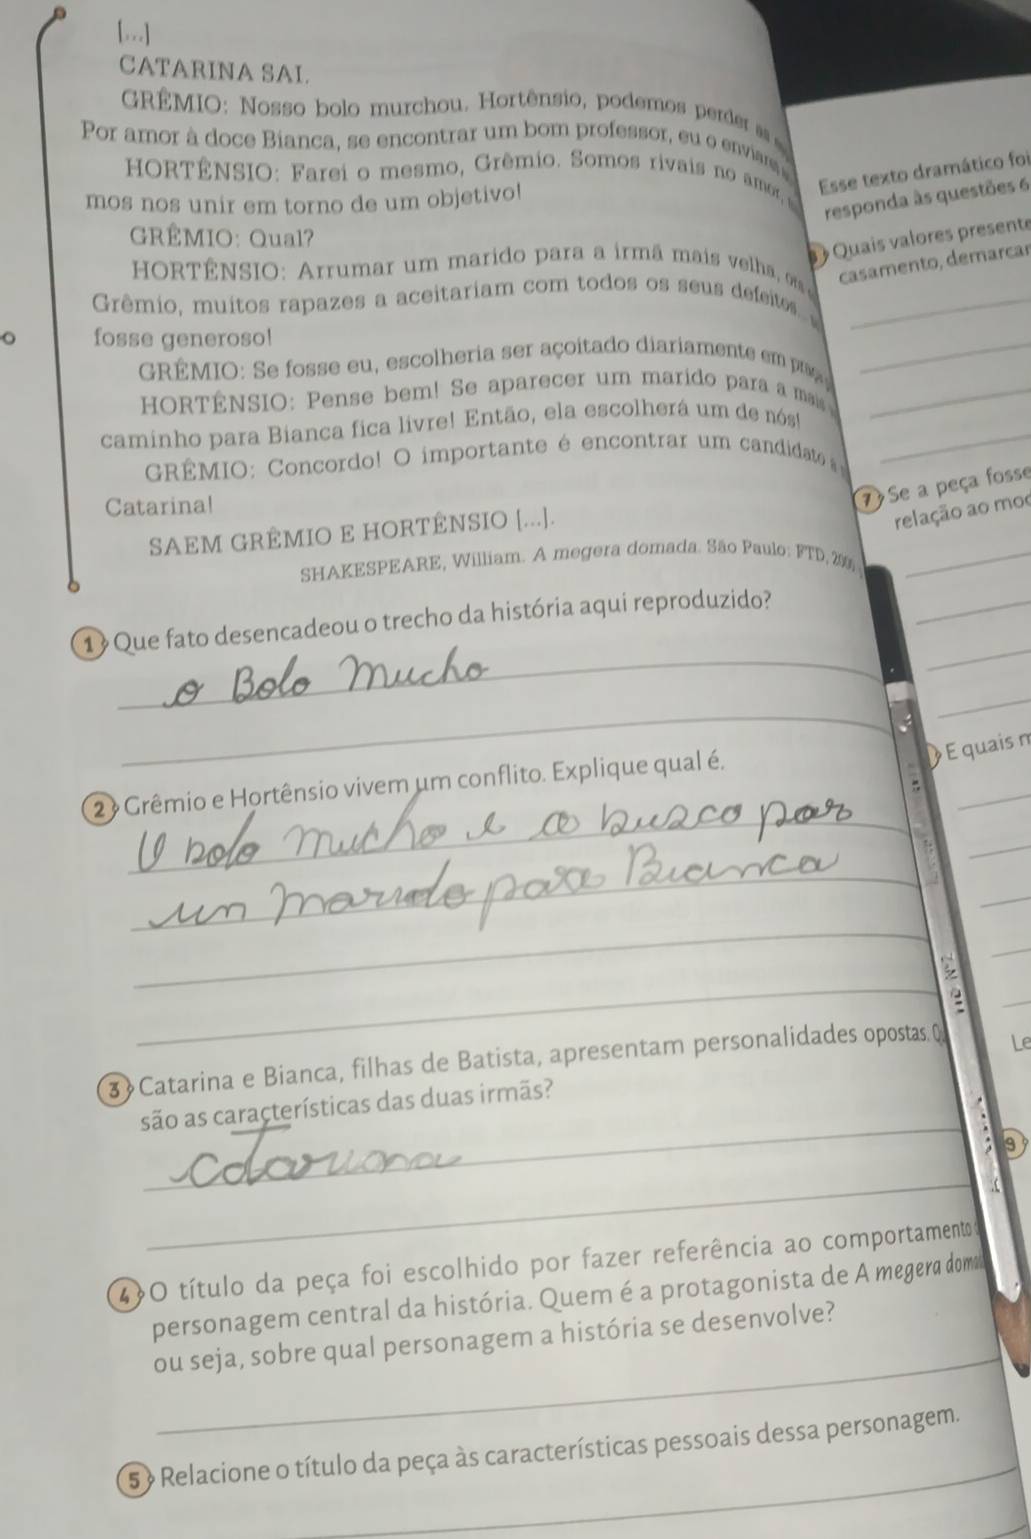 [...]
CATARINA SAI.
GRÊMIO: Nosso bolo murchou. Hortênsio, podemos perder as
Por amor à doce Bianca, se encontrar um bom professor, eu o enviarei
HORTÊNSIO: Farei o mesmo, Grêmio. Somos rivais no amor,
mos nos unir em torno de um objetivo!
GRÊMIO: Qual?
HORTÊNSIO: Arrumar um marido para a irmã mais velha,
Grêmio, muitos rapazes a aceitariam com todos os seus defeitos...
fosse generoso!
GRÊMIO: Se fosse eu, escolheria ser açoitado diariamente em
HORTÊNSIO: Pense bem! Se aparecer um marido para a mais
caminho para Bianca fica livre! Então, ela escolherá um de nós!
GRÊMIO: Concordo! O importante é encontrar um candidato a
Catarina!
SAEM GRÊMIO E HORTÊNSIO [...].
SHAKESPEARE, William. A megera domada. São Paulo: FTD,
1 Que fato desencadeou o trecho da história aqui reproduzido?
o Bolo Mucho
2 Grêmio e Hortênsio vivem um conflito. Explique qual é.
O bolo mucho e a busco por
um marido para Bianca
3 Catarina e Bianca, filhas de Batista, apresentam personalidades opostas.
são as características das duas irmãs?
4 O título da peça foi escolhido por fazer referência ao comportamento
personagem central da história. Quem é a protagonista de A megera
ou seja, sobre qual personagem a história se desenvolve?
5 Relacione o título da peça às características pessoais dessa personagem.
Esse texto dramático foi
responda às questões 6
Quais valores presente
casamento, demarcar
7 Se a peça fosse
relação ao mod
E quais m
Le
9